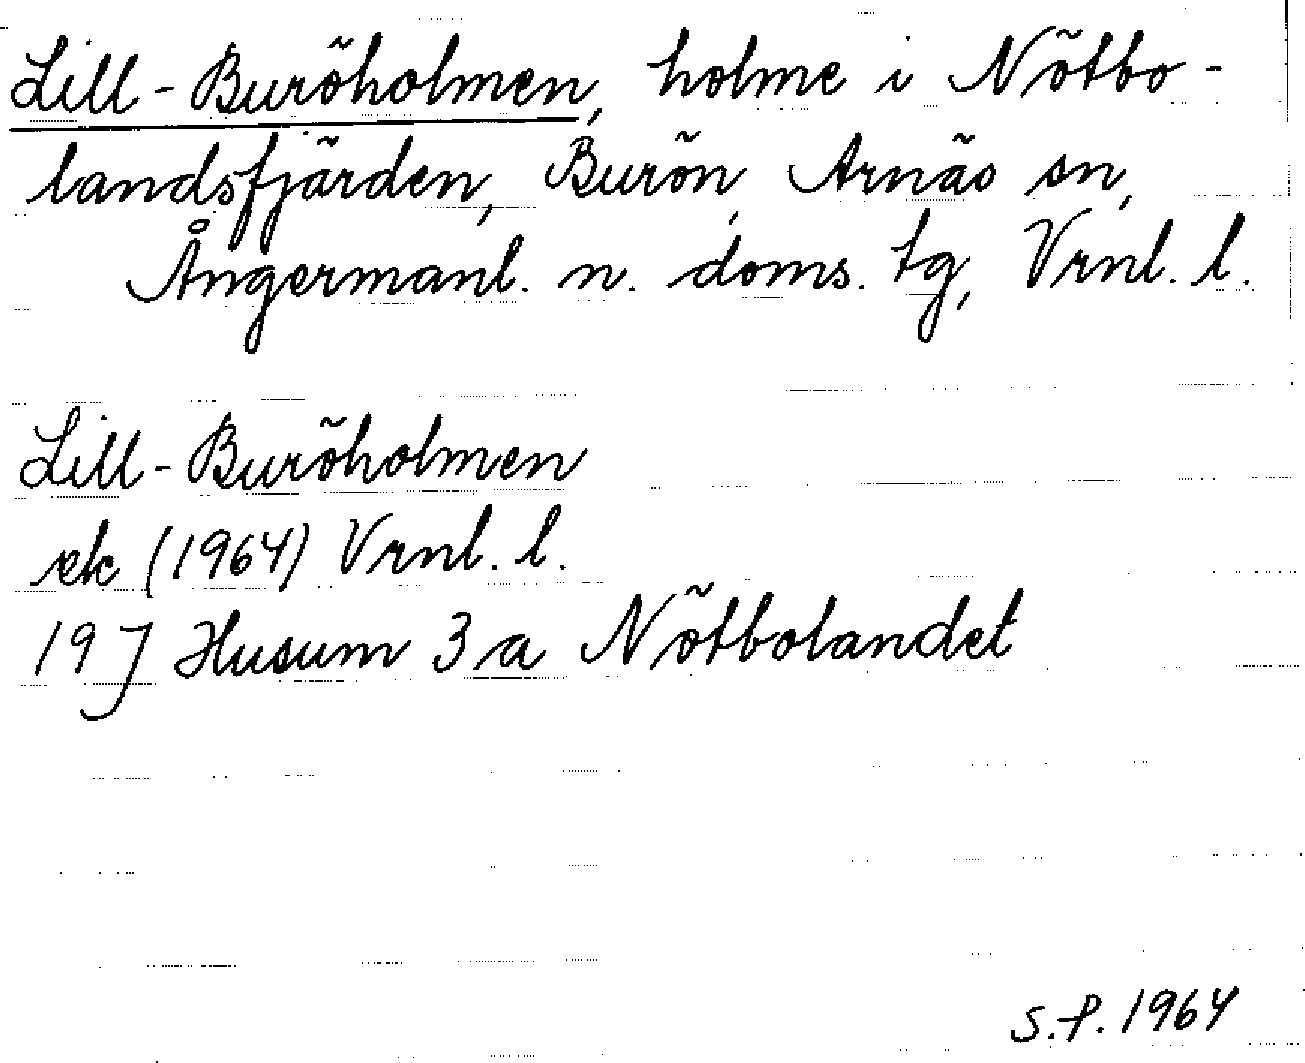 Lill-Buröholmen, holme i Nötbo-
landsfjärden, Burön, Arnäs sn,
Ångermanl. n. doms. tg, Vrnl. l.
Lill-Buröholmen
ek (1964) Vrnl. l.
19 J Husum 3 a Nötbolandet
S.P. 1964